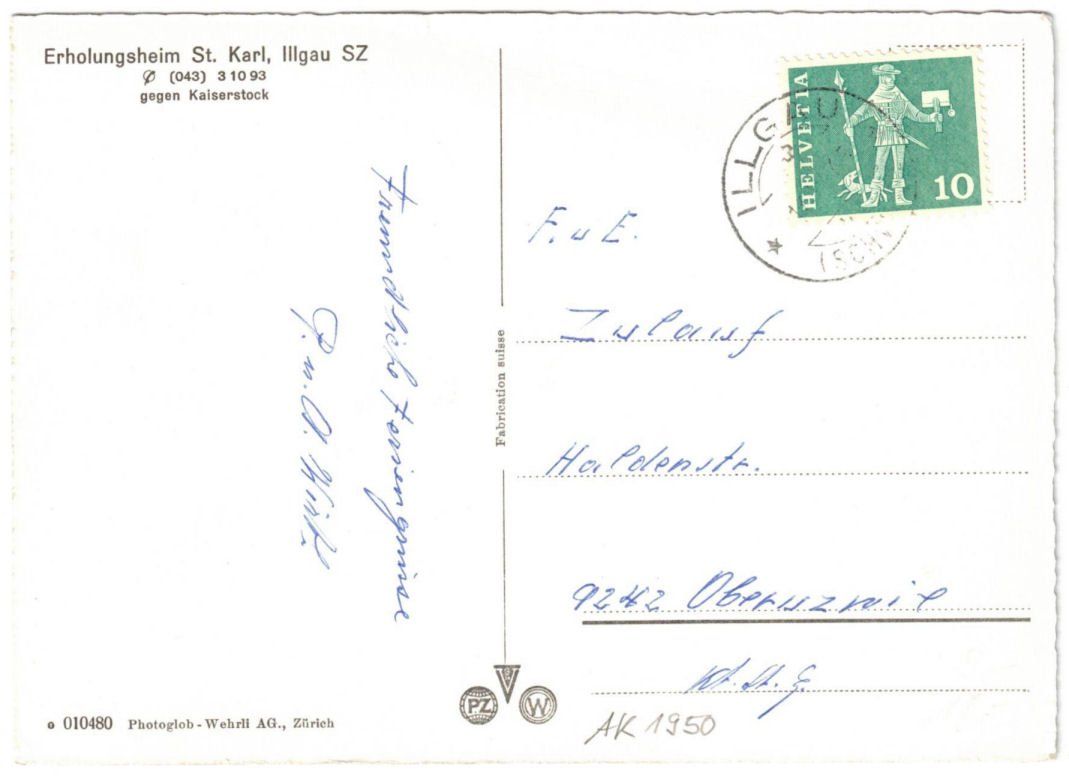 Erholungsheim St. Karl, Illgau SZ
(043) 3 10 93
gegen Kaiserstock
Freundliche Feriengrüsse
Fabrication suisse
HELVETIA
10
ILLGAU
(SCHW
F. u E.
Zulauf
Haldenstr.
9242 Oberuzwil
Kt. St. G.
PZ
W
010480 Photoglob-Wehrli AG., Zürich
AK 1950